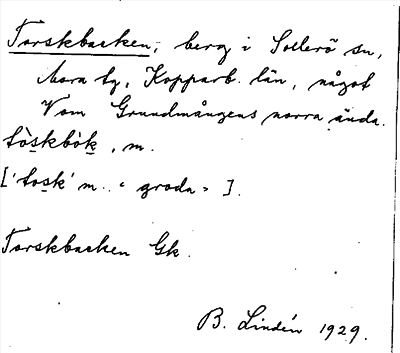 Torskbacken, berg i Sollerö sn,
Mora tg, Kopparb. län, något
V om Grundmångens norra ända.
tòskbòk, m.
['tosk' m. "groda"].
Torskbacken Gk.
B. Lindén 1929.